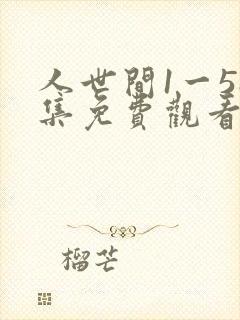 人世間1一5
集免費觀看
榴芒